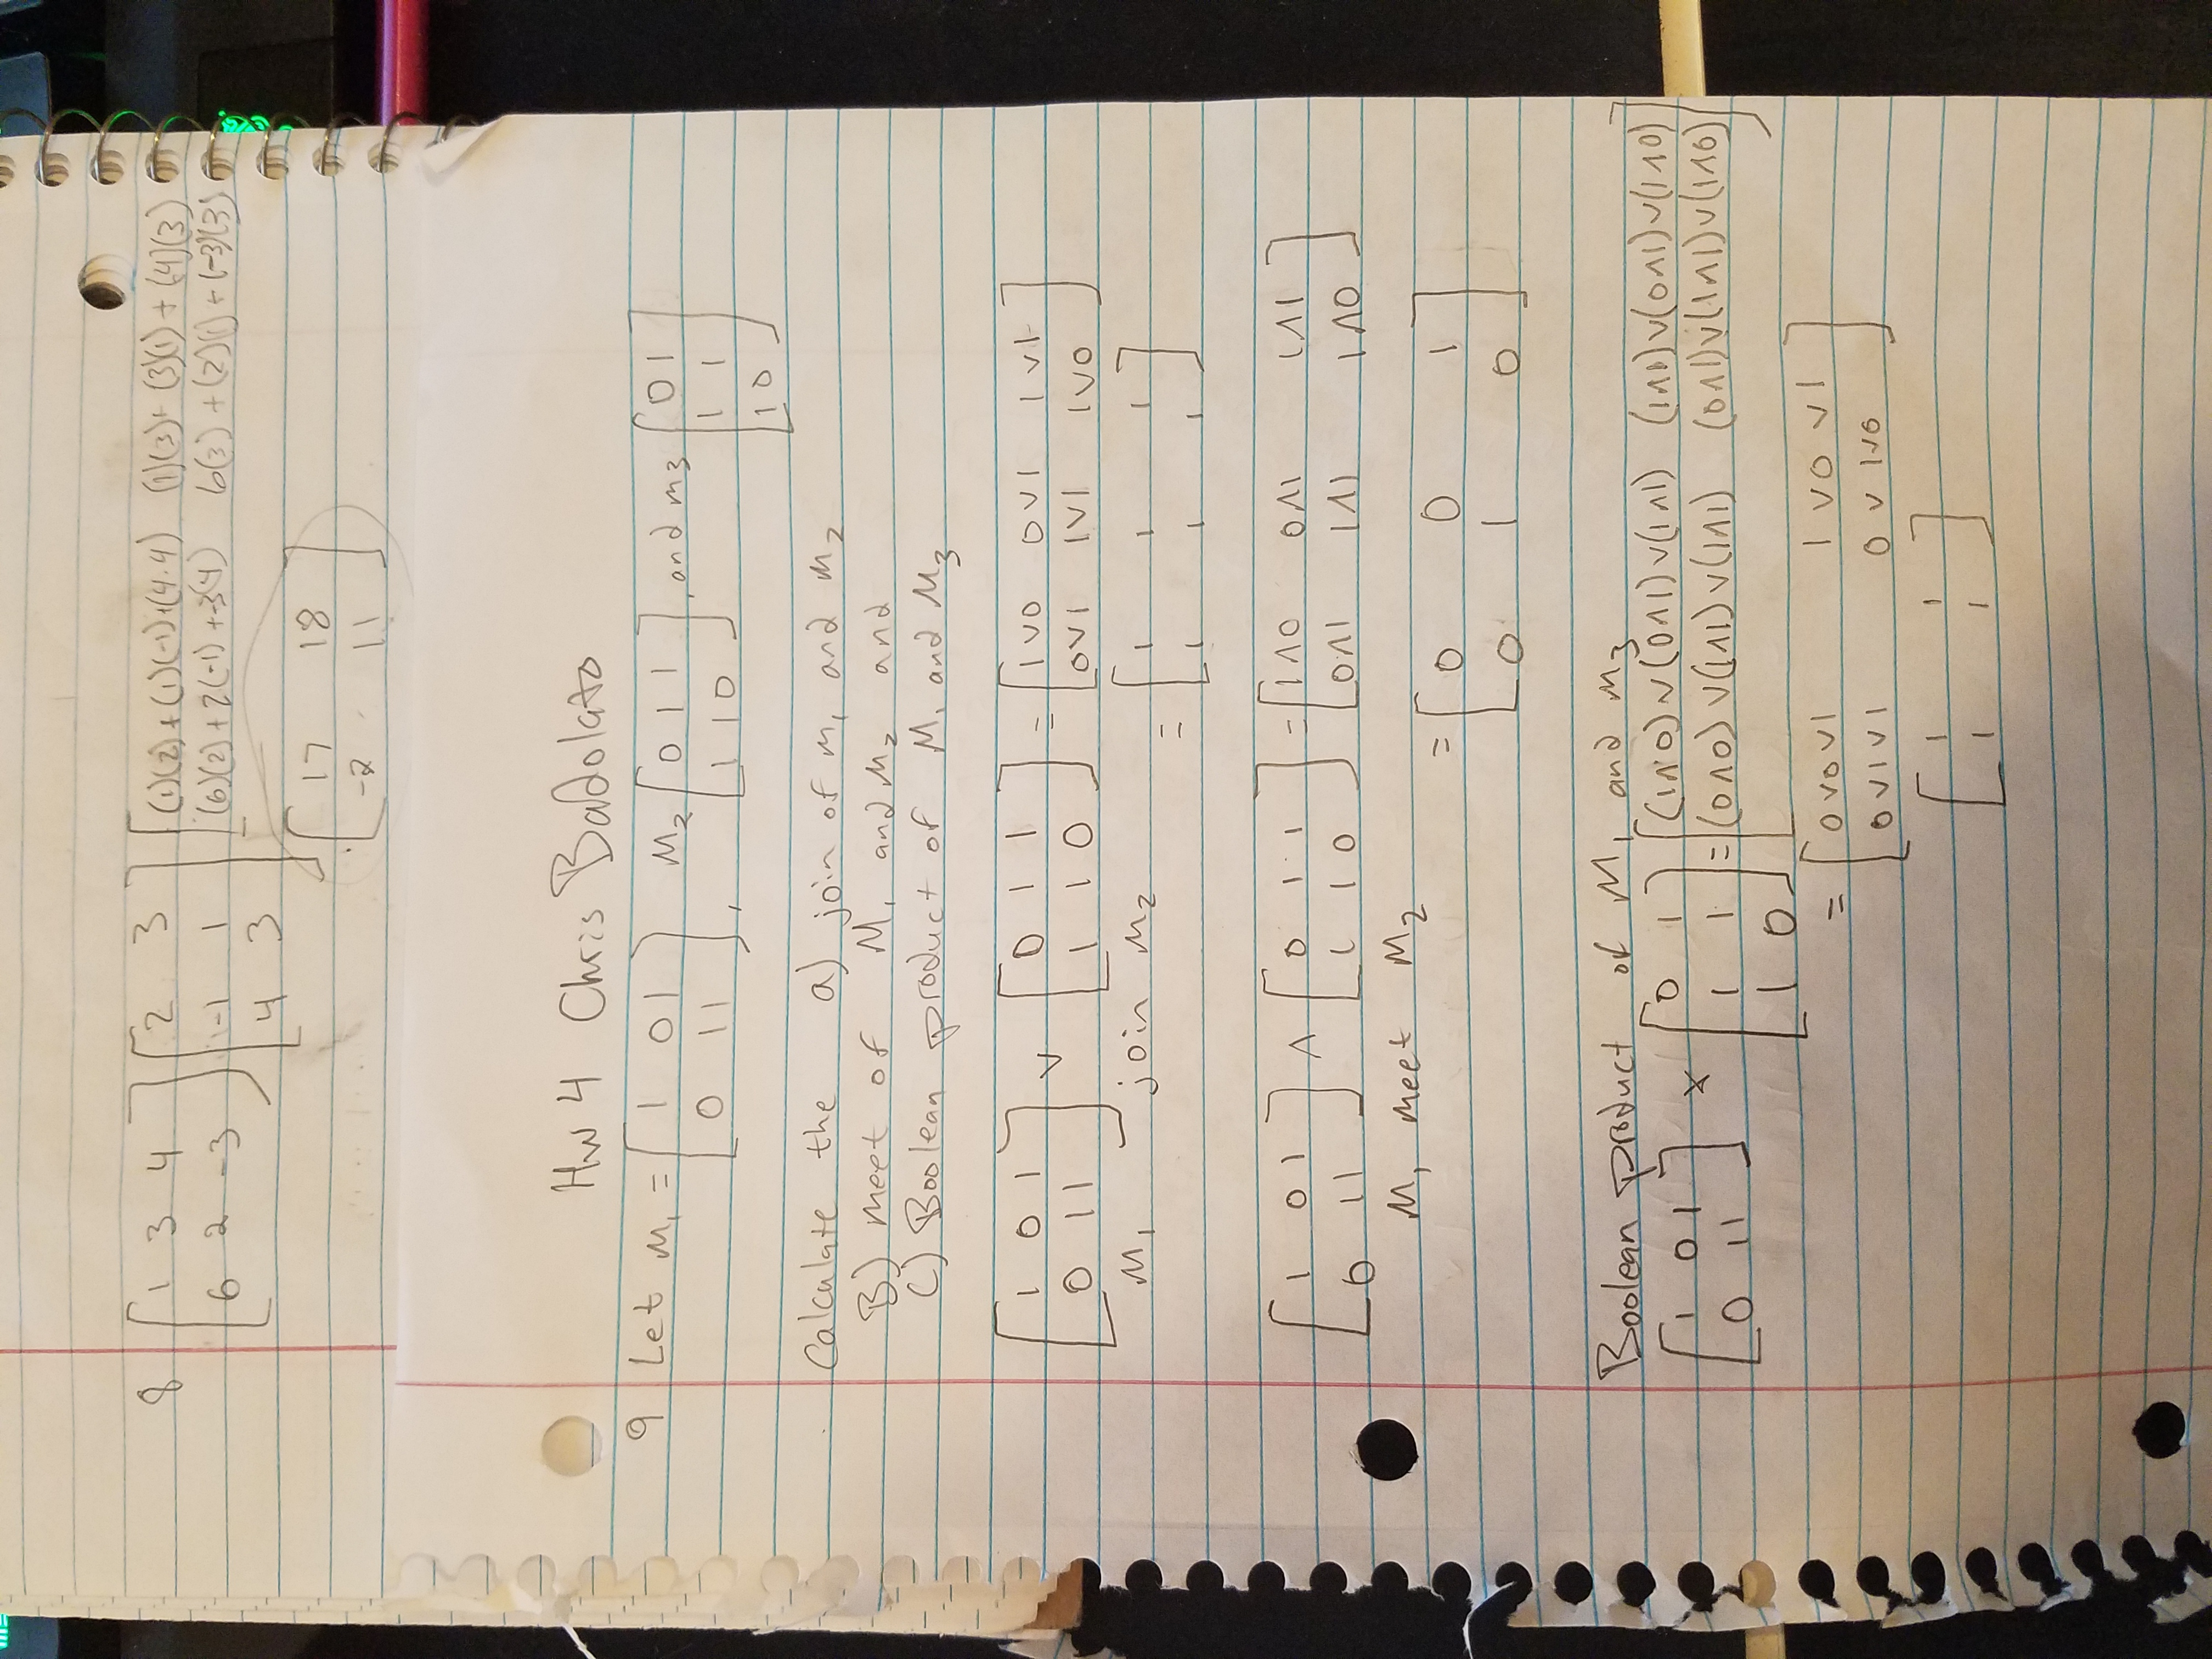 8 [1 3 4] [2 3] [(1)(2)+(1)(-1)+(4·4) (1)(3)+(3)(1)+(4)(3)]
[6 2 -3] [-1 1] [(6)(2)+2(-1)+-3(4) 6(3)+(2)(1)+(-3)(3)]
[4 3]
[17 18]
[-2 11]
Hw 4 Chris Badolato
9 Let M₁ = [1 0 1] M₂ [0 1 1], and m3 [0 1]
[0 1 1], [1 1 0] [1 1]
[1 0]
Calculate the a) join of m₁ and m₂
B) meet of M₁ and M₂ and
C) Boolean product of M₁ and M₃
[1 0 1] ∨ [0 1 1] = [1∨0 0∨1 1∨1]
[0 1 1] [1 1 0] [0∨1 1∨1 1∨0]
M₁ join M₂
= [1 1 1]
[1 1 1]
[1 0 1] ∧ [0 1 1] = [1∧0 0∧1 1∧1]
[0 1 1] [1 1 0] [0∧1 1∧1 1∧0]
M₁ meet M₂
= [0 0 1]
[0 1 0]
Boolean product of M₁ and M3
[1 0 1] × [0 1] = [(1∧0)∨(0∧1)∨(1∧1) (1∧1)∨(0∧1)∨(1∧0)]
[0 1 1] [1 1] [(0∧0)∨(1∧1)∨(1∧1) (0∧1)∨(1∧1)∨(1∧0)]
[1 0]
= [0∨0∨1 1∨0∨1]
[0∨1∨1 0∨1∨0]
[1 1]
[1 1]